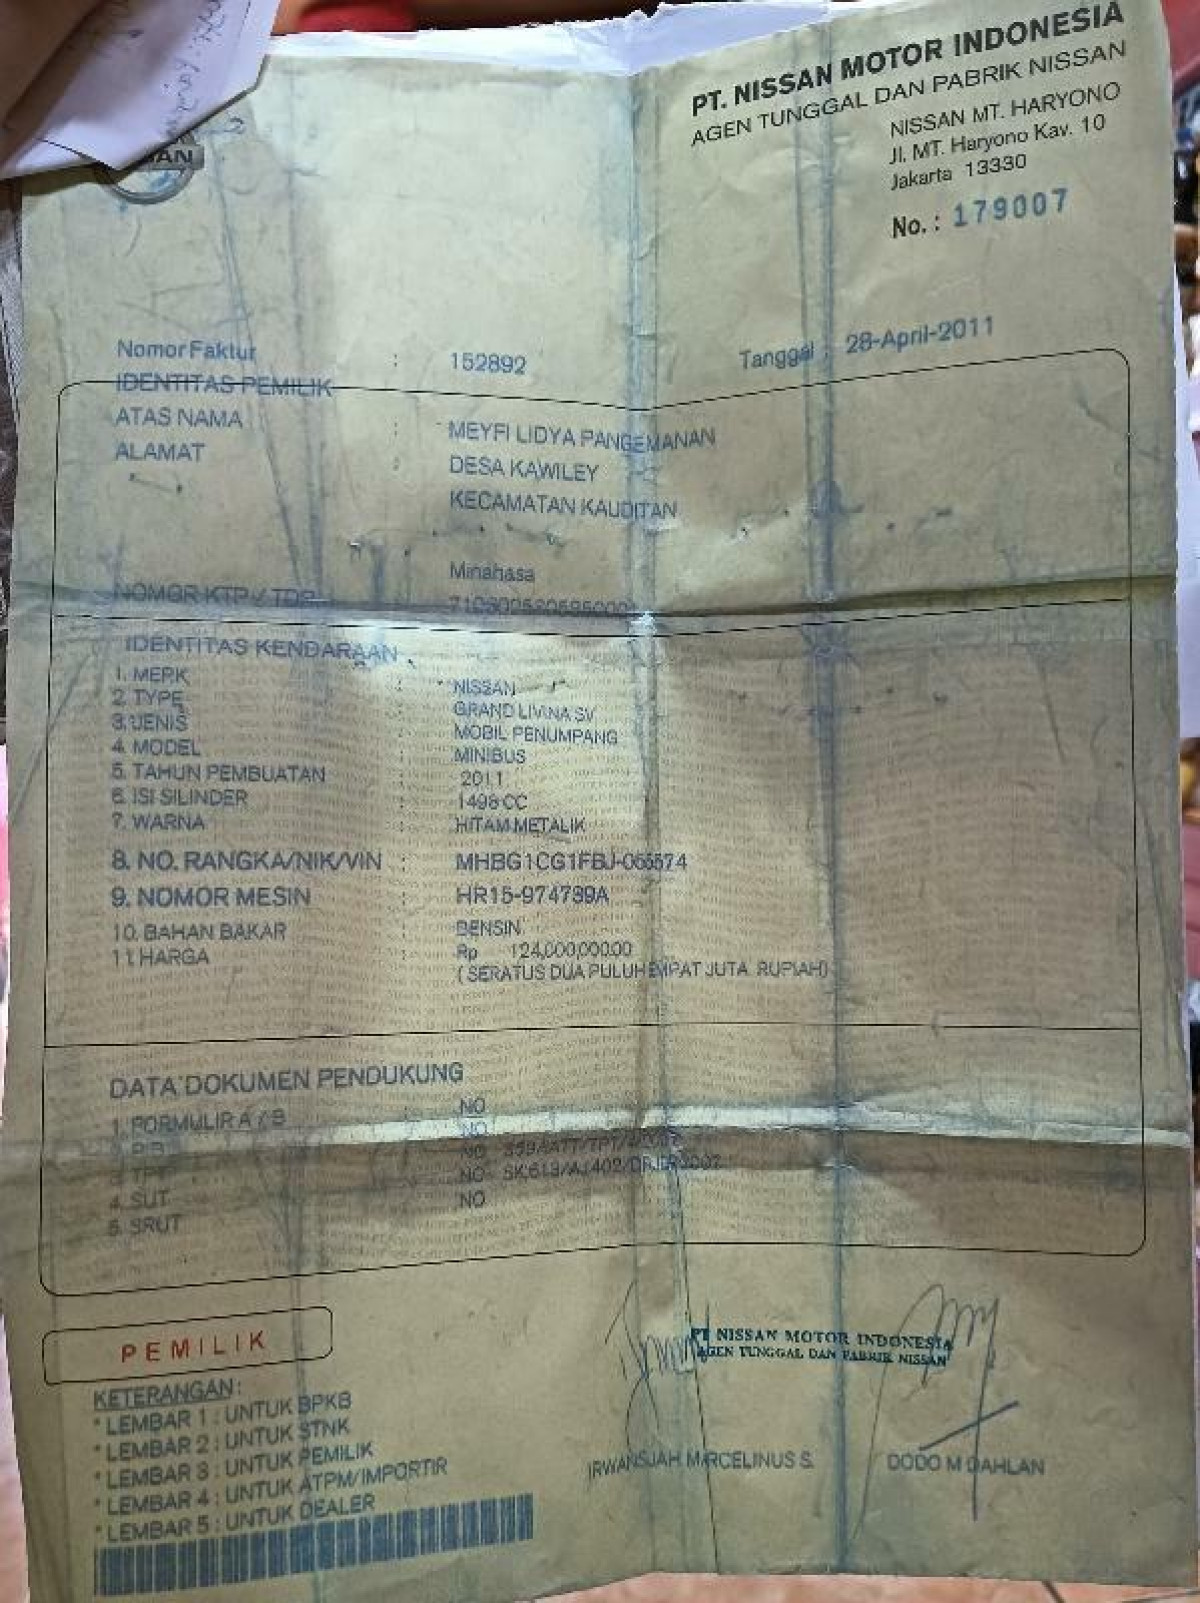 PT. NISSAN MOTOR INDONESIA
AGEN TUNGGAL DAN PABRIK NISSAN
NISSAN MT. HARYONO
Jl. MT. Haryono Kav. 10
Jakarta 13330
No. : 179007
Nomor Faktur : 152892
Tanggal : 28-April-2011
IDENTITAS PEMILIK
ATAS NAMA : MEYFI LIDYA PANGEMANAN
ALAMAT : DESA KAWILEY
KECAMATAN KAUDITAN
Minahasa
NOMOR KTP / TDP
IDENTITAS KENDARAAN
1. MERK : NISSAN
2. TYPE : GRAND LIVINA SV
3. JENIS : MOBIL PENUMPANG
4. MODEL : MINIBUS
5. TAHUN PEMBUATAN : 2011
6. ISI SILINDER : 1498 CC
7. WARNA : HITAM METALIK
8. NO. RANGKA/NIK/VIN :
9. NOMOR MESIN : HR15-974789A
10. BAHAN BAKAR : BENSIN
11. HARGA : Rp 124,000,000.00
( SERATUS DUA PULUH EMPAT JUTA RUPIAH)
DATA DOKUMEN PENDUKUNG
1. FORMULIR A / B : NO
2. PIB : NO
3. TPT : NO
4. SUT : NO
5. SRUT NO
PEMILIK
PT NISSAN MOTOR INDONESIA
AGEN TUNGGAL DAN PABRIK NISSAN
KETERANGAN :
* LEMBAR 1 : UNTUK BPKB
* LEMBAR 2 : UNTUK STNK
* LEMBAR 3 : UNTUK PEMILIK
* LEMBAR 4 : UNTUK ATPM/IMPORTIR
* LEMBAR 5 : UNTUK DEALER
IRWANSJAH MARCELINUS S.
DODO M DAHLAN